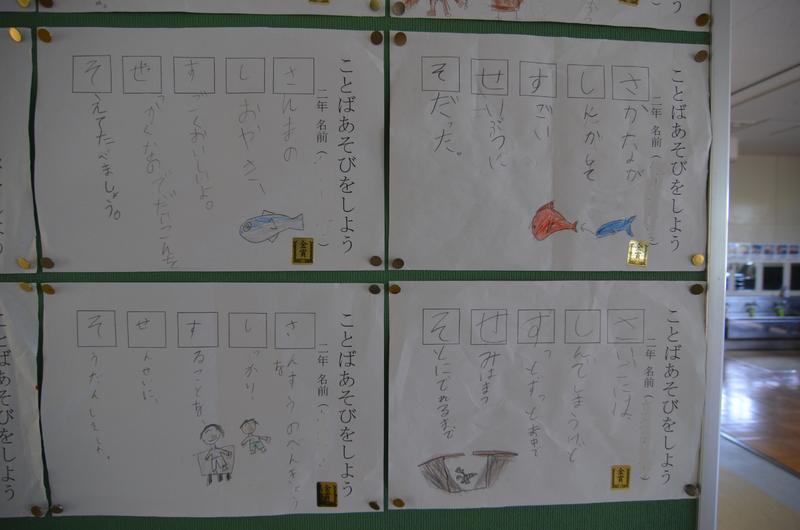 ことばあそびをしよう
二年 名前( )
さかなが
しんかして
すごい
せいぶつに
そだった。
金賞
ことばあそびをしよう
二年 名前( )
さんまの
しおやき、
すごくおいしいよ。
せっかくなのでだいこんを
そえてたべましょう。
金賞
ことばあそびをしよう
二年 名前(
さいごには、
しんでしまうけど
ずっとずっと
せみはまつ
そとにでれるまで
金賞
ことばあそびをしよう
二年 名前(
さんすうのべんきょうを
しっかり!
することを
せんせいに、
そうだんしました。
金賞